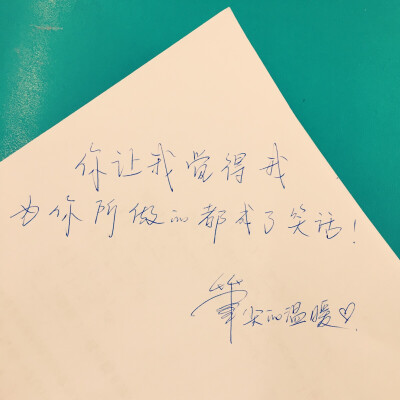 你让我觉得我
为你所做的都成了笑话!
笔尖的温暖♡.